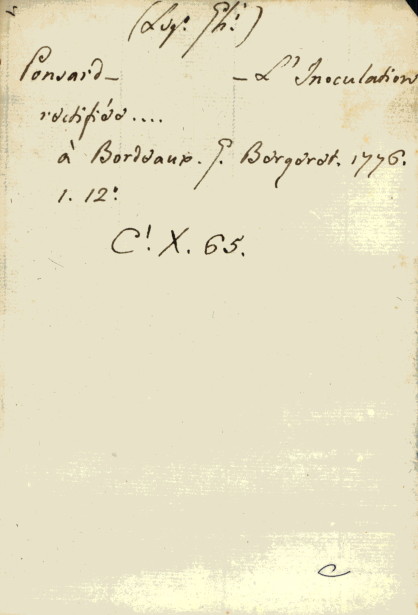 (Lug. Ph.)
Ponsard – – L'Inoculation
rectifiée....
à Bordeaux. J. Bergeret. 1776.
1. 12.
C! X. 65.
C